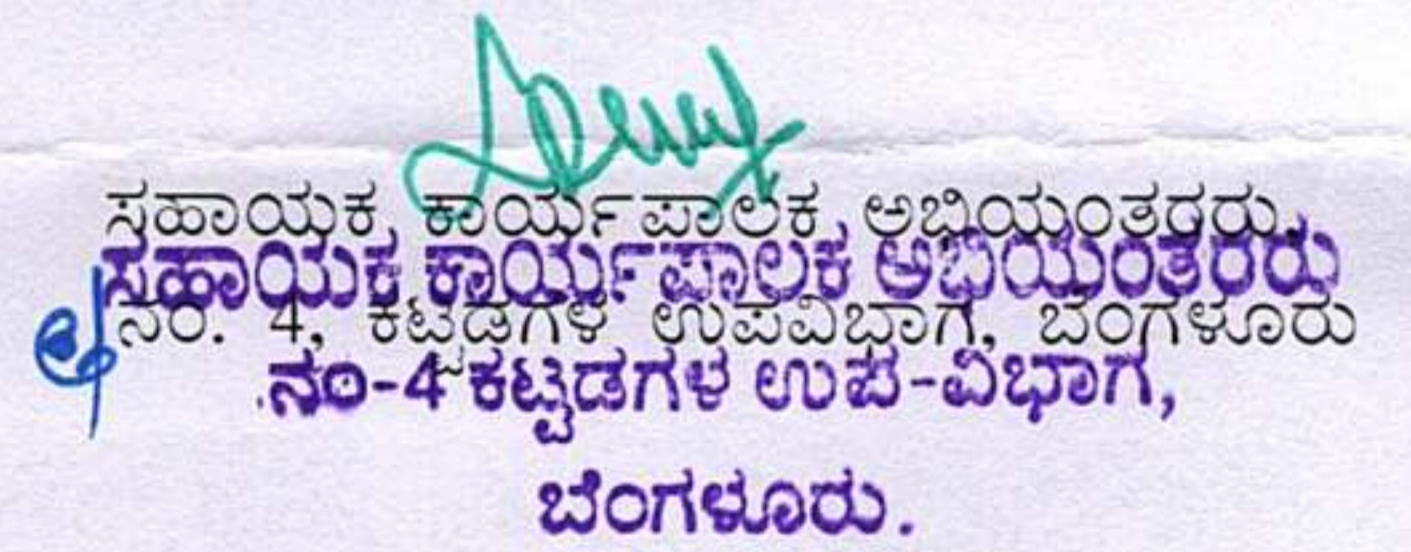 ಸಹಾಯಕ ಕಾರ್ಯಪಾಲಕ ಅಭಿಯಂತರರು,
ಸಹಾಯಕ ಕಾರ್ಯಪಾಲಕ ಅಭಿಯಂತರರು
ನಂ. 4, ಕಟ್ಟಡಗಳ ಉಪವಿಭಾಗ, ಬೆಂಗಳೂರು
ನಂ-4 ಕಟ್ಟಡಗಳ ಉಪ-ವಿಭಾಗ,
ಬೆಂಗಳೂರು.